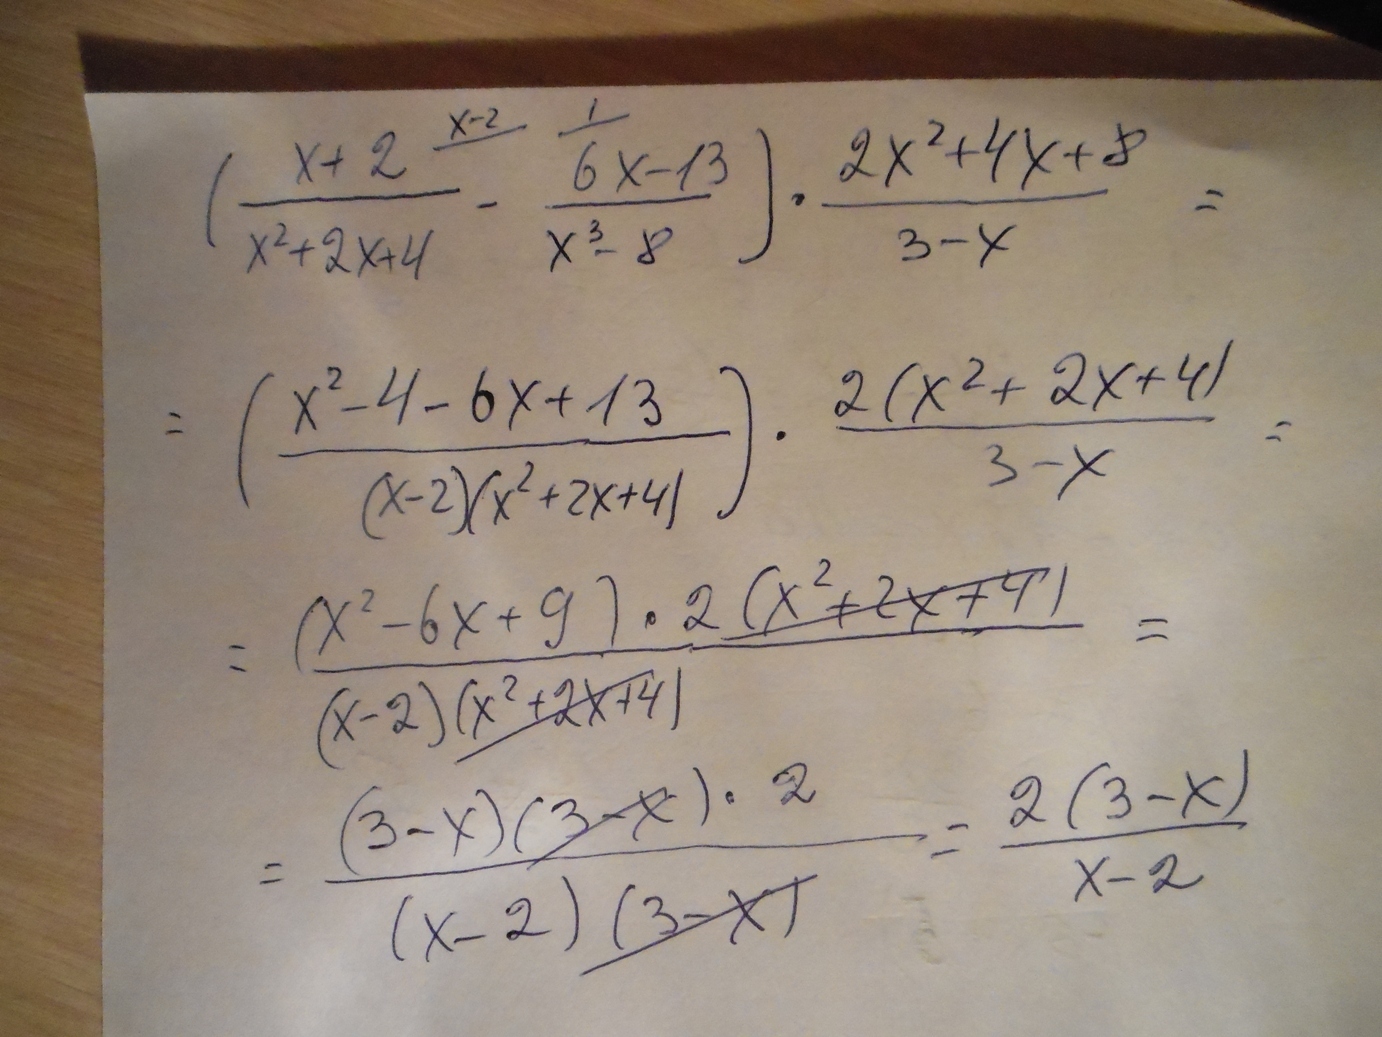 ( (x+2)/(x²+2x+4) ^(x-2) - (6x-13)/(x³-8) ^(1) ) · (2x²+4x+8)/(3-x) =
= ( (x²-4-6x+13)/((x-2)(x²+2x+4)) ) · 2(x²+2x+4)/(3-x) =
= (x²-6x+9)·2(x²+2x+4)/((x-2)(x²+2x+4)) =
= (3-x)(3-x)·2/((x-2)(3-x)) = 2(3-x)/(x-2)